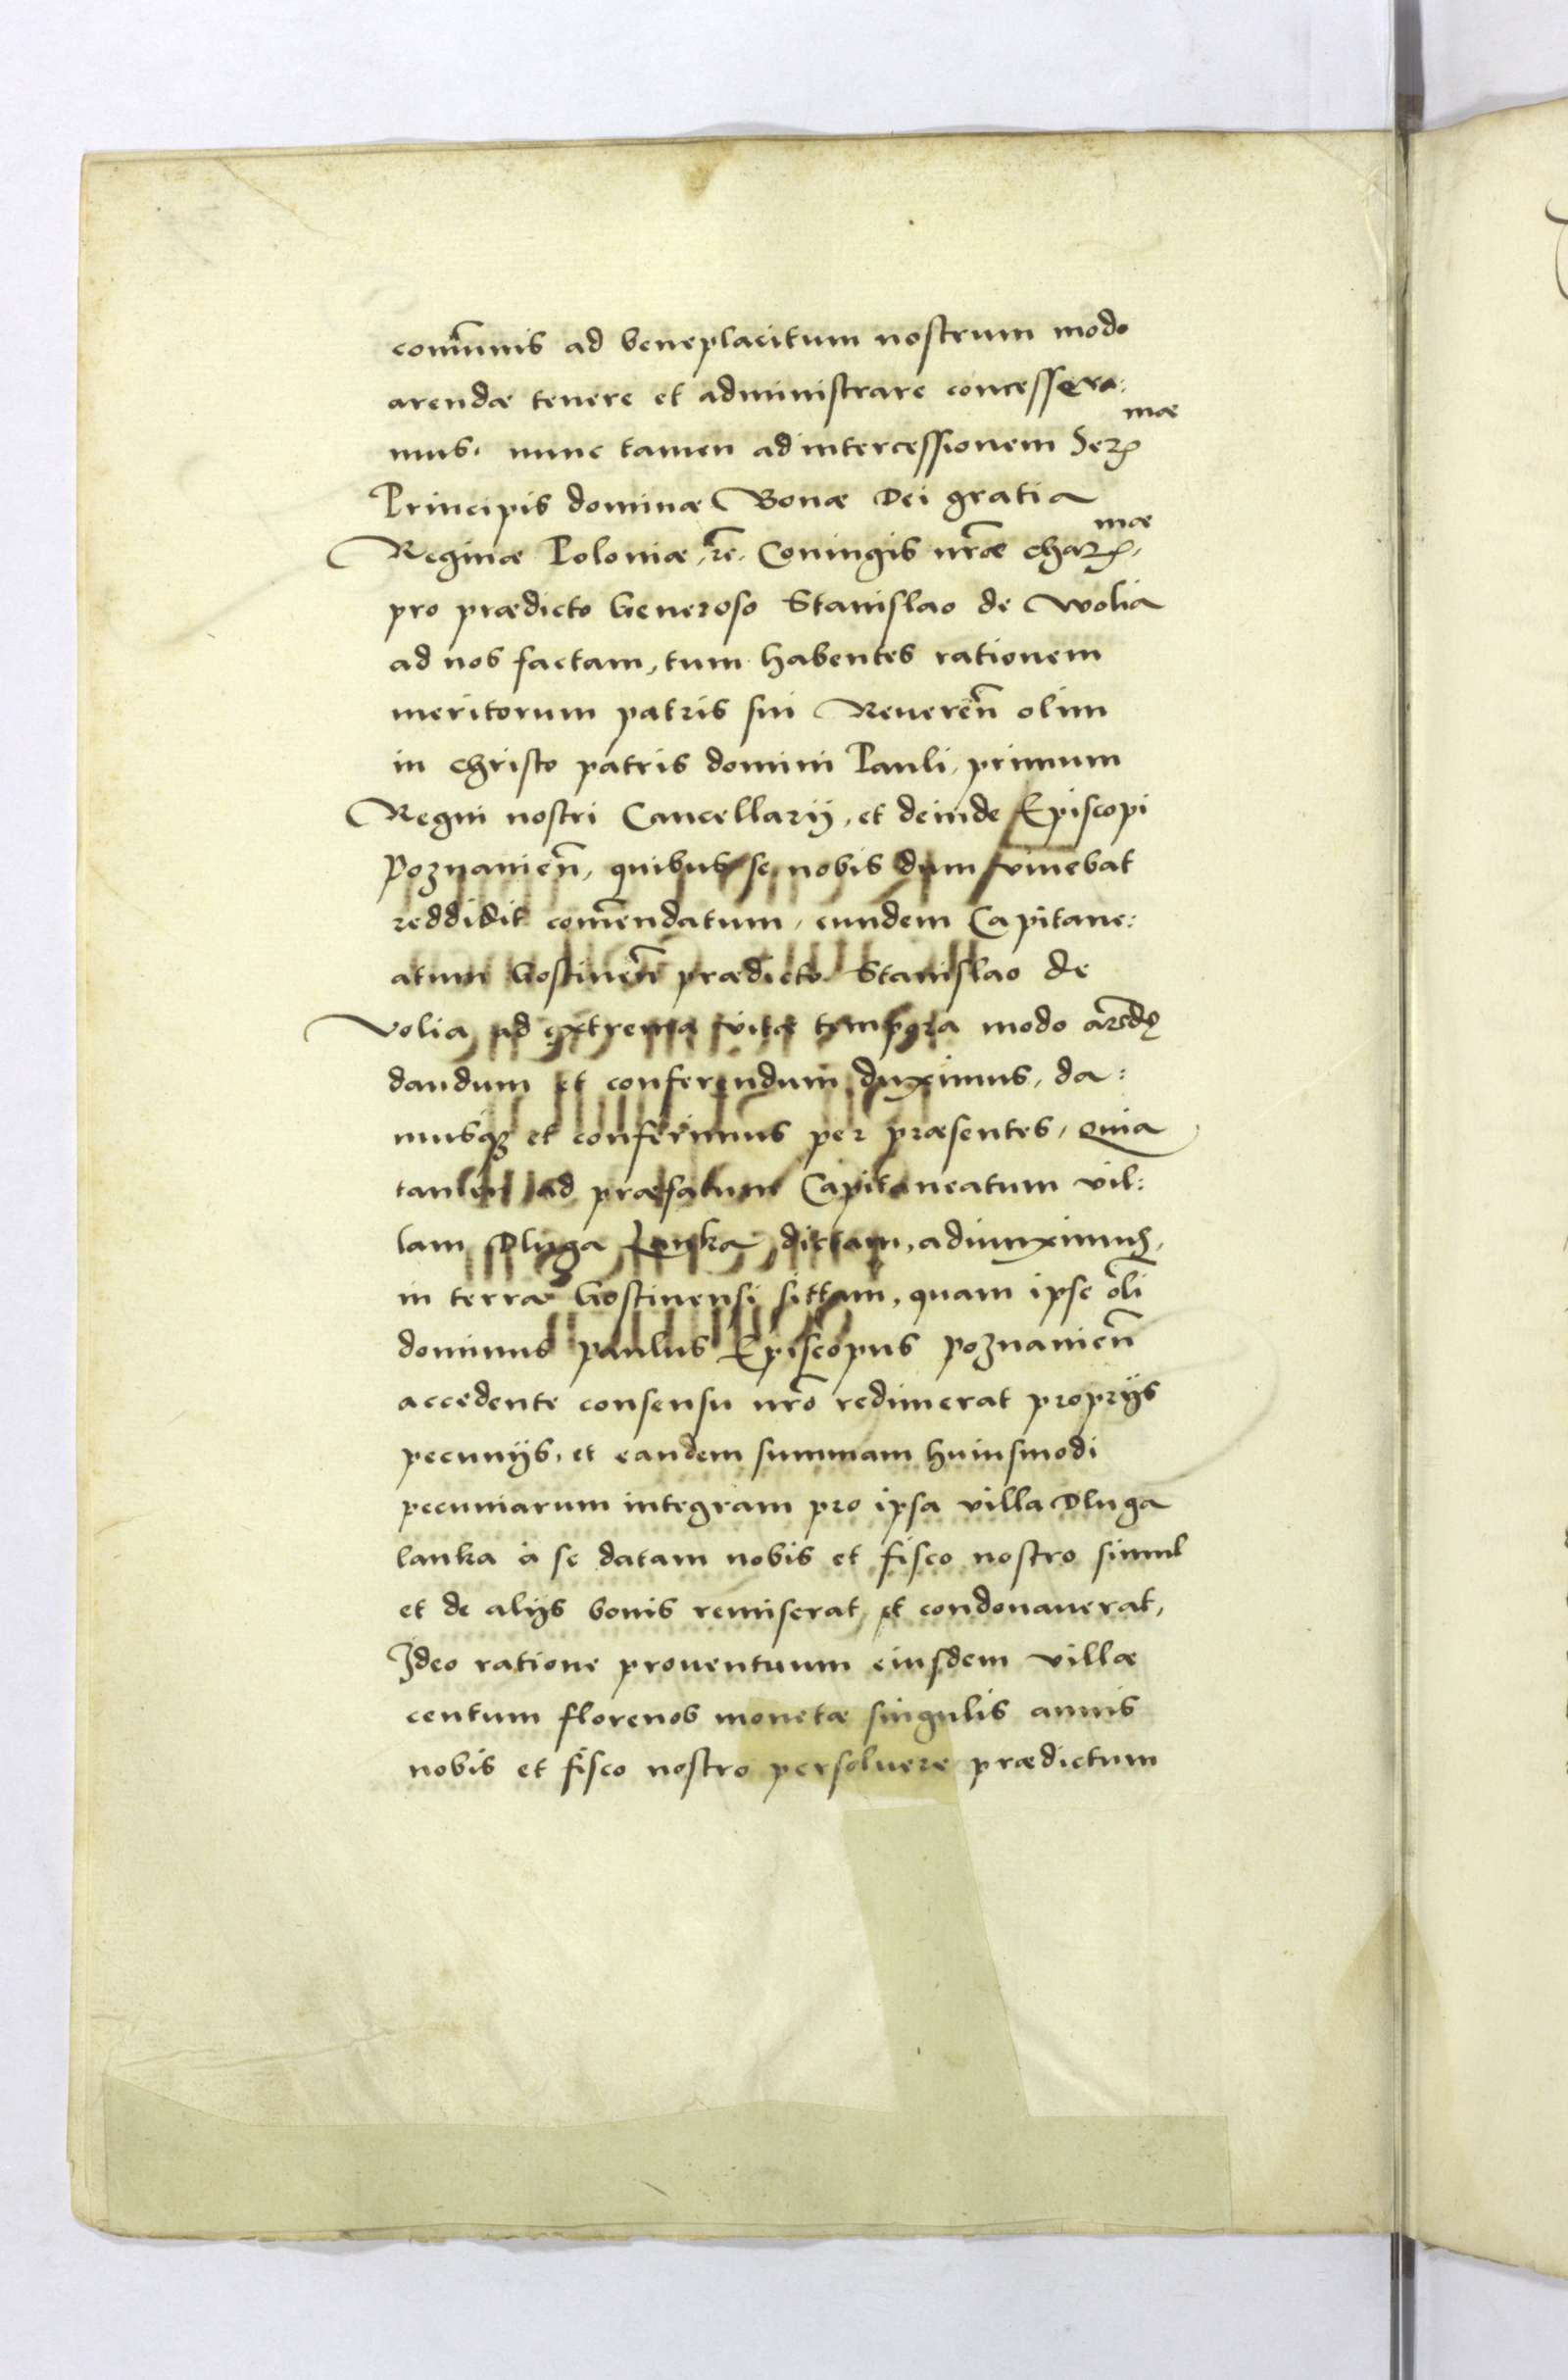 com̃unis ad beneplacitum nostrum modo
arendæ tenere et administrare concessera:
mus. nunc tamen ad intercessionem Ser.mæ
Principis dominæ Bonæ Dei gratia
Reginæ Poloniæ, etc. Coniugis nr̃æ char.mæ,
pro prædicto Generoso Stanislao de Wolia
ad nos factam, tum habentes rationem
meritorum patris sui Reueren̄ olim
in Christo patris domini Pauli, primum
Regni nostri Cancellarij, et deinde Episcopi
Poznanien̄, quibus se nobis dum viuebat
reddidit com̃endatum, eundem Capitane:
atum Gostinen̄ prædicto Stanislao de
Volia ad extrema vitæ tempora modo arẽdę
dandum et conferendum duximus, da:
musq; et conferimus per præsentes, Quia
tamen ad præfatum Capitaneatum vil:
lam Dluga Lanka dictam, adiunximus,
in terra Gostinensi sittam, quam ipse oli̅
dominus Paulus Episcopus Poznanien̄
accedente consensu nr̃o redimerat proprijs
pecunijs, et eandem summam huiusmodi
pecuniarum integram pro ipsa villa Dluga
lanka à se datam nobis et fisco nostro simul
et de alijs bonis remiserat et condonauerat,
Ideo ratione prouentuum eiusdem villæ
centum florenos monetæ singulis annis
nobis et fisco nostro persoluere prædictum